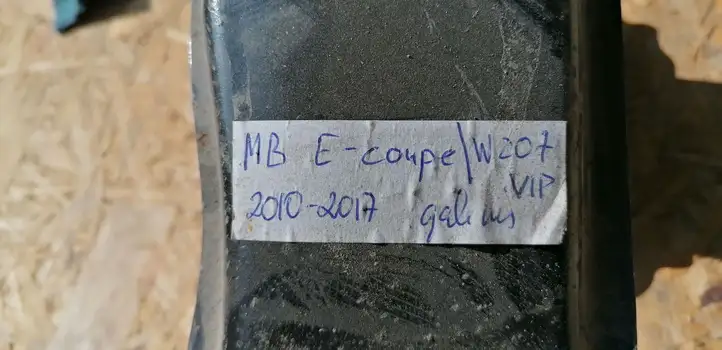 MB E-coupe\W207
VIP
2010-2017 galinis